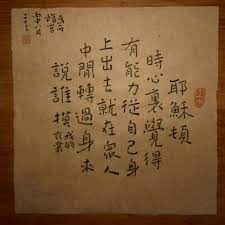 耶穌頓
時心裏覺得
有能力從自己身
上出去就在眾人
中間轉過身來
說誰摸我的
衣裳